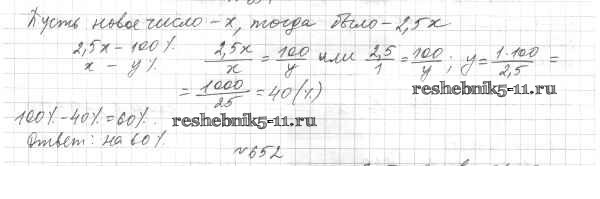 Пусть новое число - x, тогда было - 2,5x
2,5x - 100%
x - y%
2,5x/x = 100/y или 2,5/1 = 100/y; y = 1·100/2,5 =
= 1000/25 = 40(%)
reshebnik5-11.ru
100% - 40% = 60%.
reshebnik5-11.ru
Ответ: на 60%.
№652